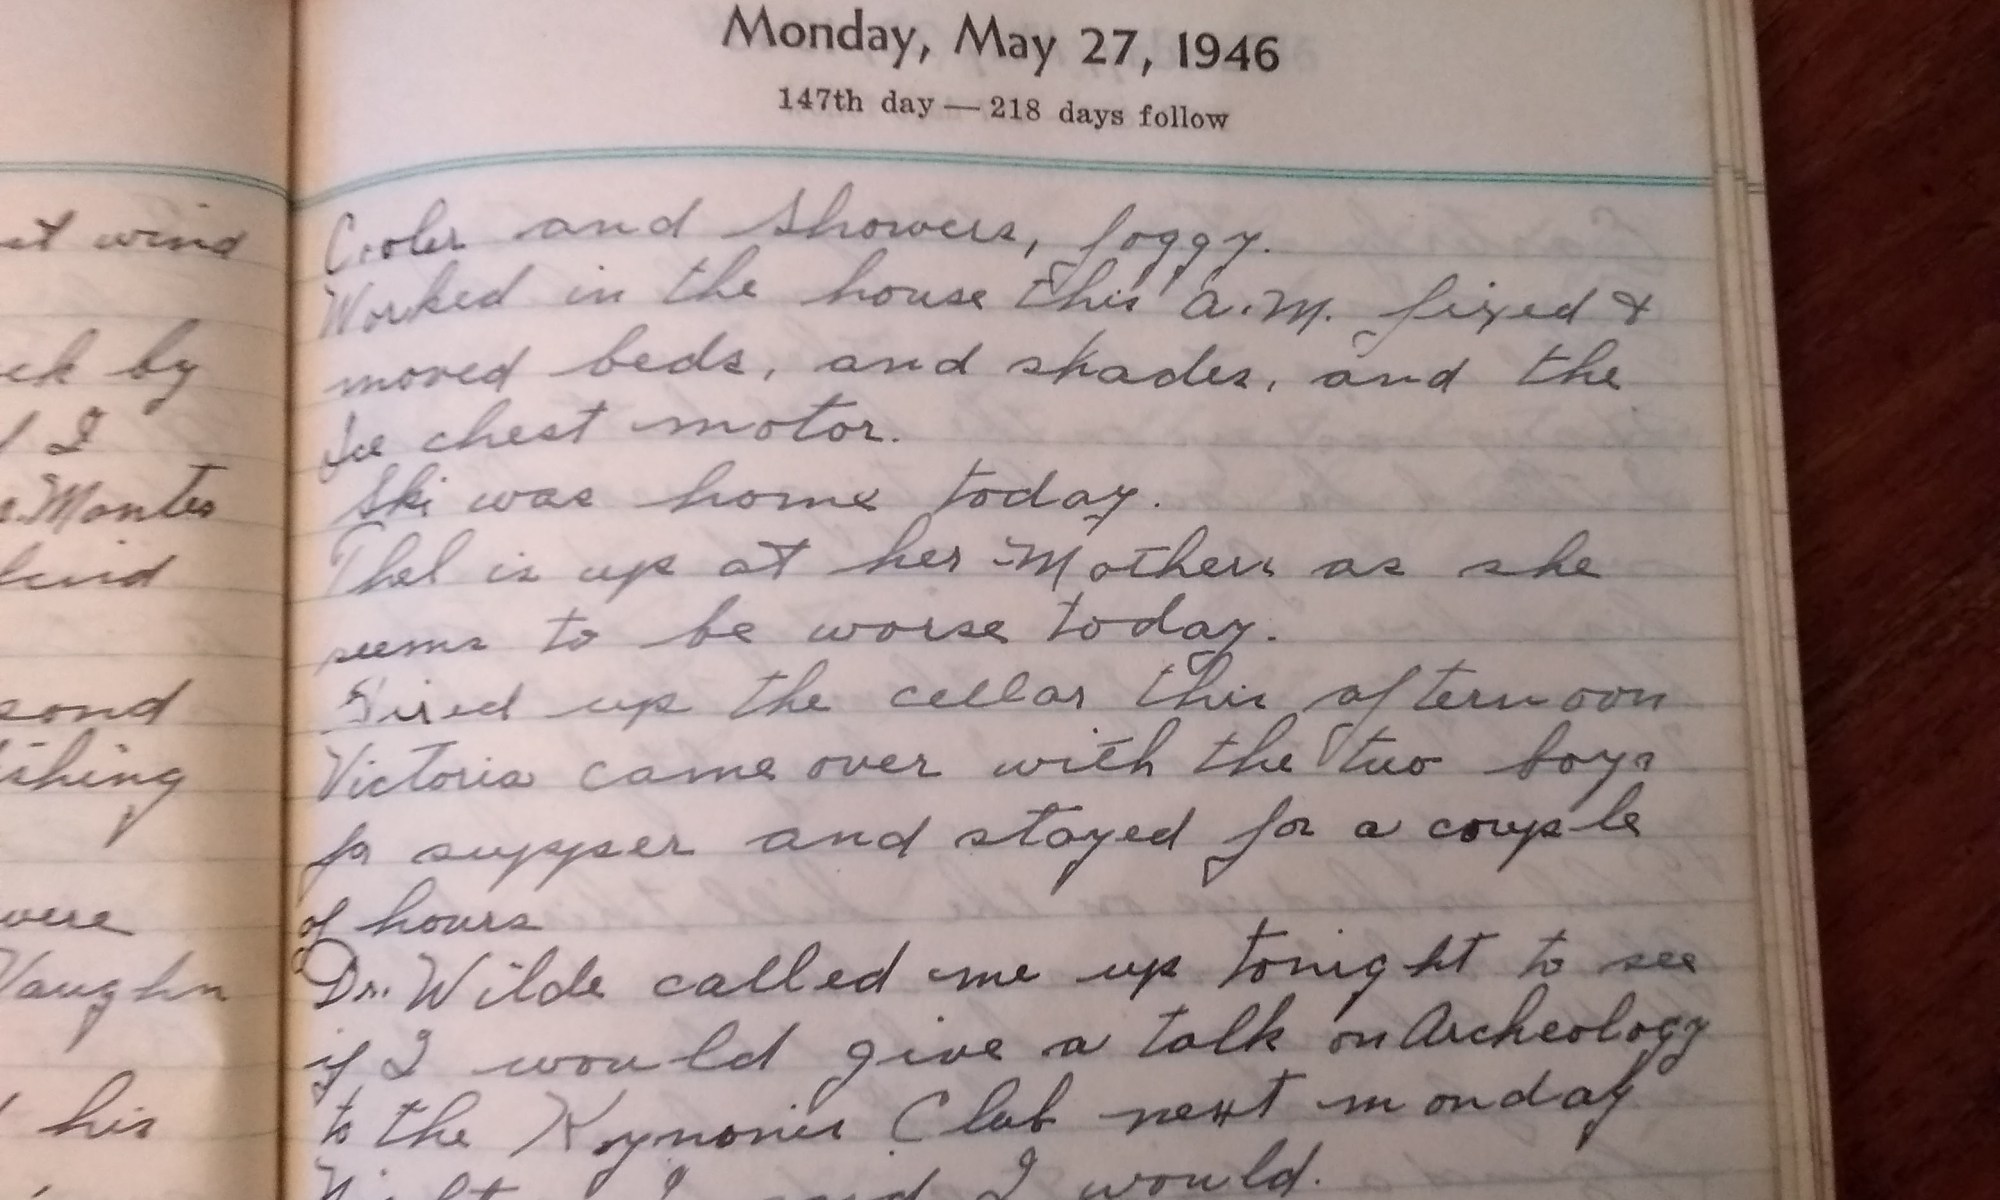 Monday, May 27, 1946
147th day — 218 days follow
st wind
ck by
I
Montes
sond
shing
were
Vaughn
his
Cooler and showers, foggy.
Worked in the house this A.M. fixed &
moved beds, and shades, and the
Ice chest motor.
Ski was home today.
Thel is up at her Mothers as she
seems to be worse today.
Fired up the cellar this afternoon
Victoria came over with the two boys
for supper and stayed for a couple
of hours
Dr. Wilde called me up tonight to see
if I would give a talk on Archeology
to the Kynonis Club next monday
Night. I said I would.